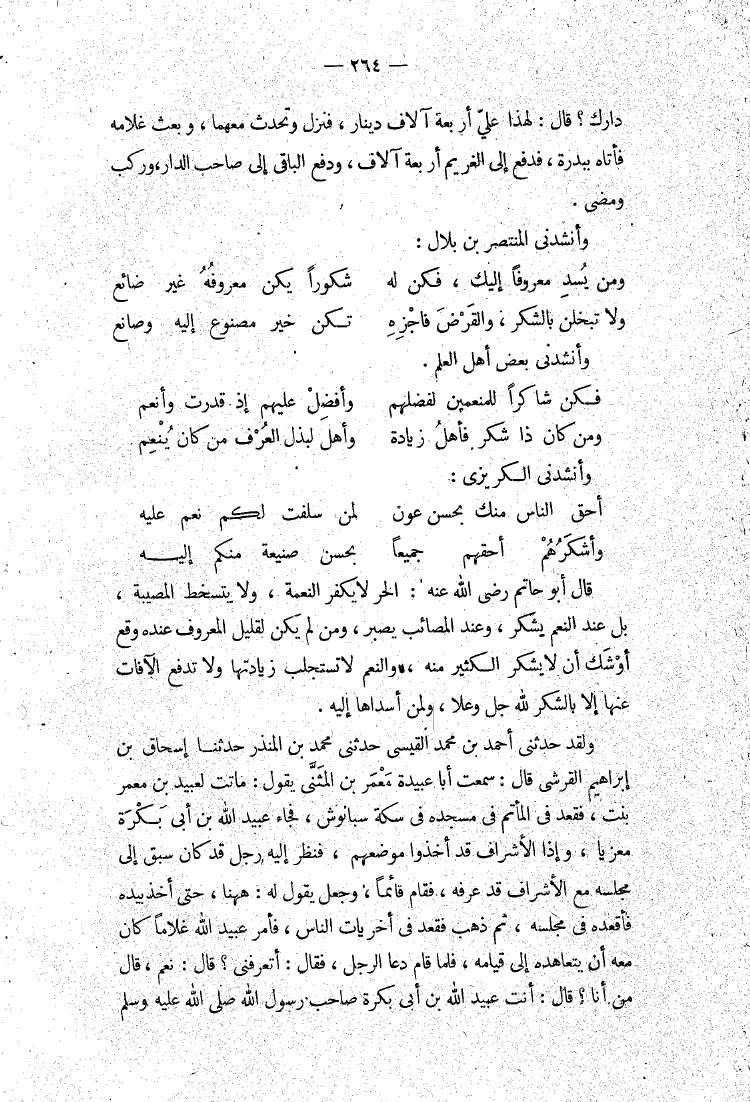 — ٢٦٤ —
دارك ؟ قال : لهذا عليّ أربعة آلاف دينار ، فنزل وتحدث معهما ، وبعث غلامه
فأتاه ببدرة ، فدفع إلى الغريم أربعة آلاف ، ودفع الباقى إلى صاحب الدار ، وركب
ومضى .
وأنشدنى المنتصر بن بلال :
ومن يُسدِ معروفاً إليك ، فكن له شكوراً يكن معروفُهُ غير ضائع
ولا تبخلن بالشكر ، والقَرْضَ فاجْزِهِ تكن خير مصنوع إليه وصانع
وأنشدنى بعض أهل العلم .
فكن شاكراً للمنعمين لفضلهم وأفضِلْ عليهم إذ قدرت وأنعم
ومن كان ذا شكر فأهلُ زيادة وأهل لبذل العُرْف من كان يُنْعِم
وأنشدنى الكريزى :
أحق الناس منك بحسن عون لمن سلفت لكم نعم عليه
وأشكَرُهُمْ أحقهم جميعاً بحسن صنيعة منكم إليه
قال أبو حاتم رضى الله عنه : الحر لا يكفر النعمة ، ولا يتسخط المصيبة ،
بل عند النعم يشكر ، وعند المصائب يصبر ، ومن لم يكن لقليل المعروف عنده وقع
أوْشَك أن لا يشكر الكثير منه ، والنعم لا تستجلب زيادتها ولا تدفع الآفات
عنها إلا بالشكر لله جل وعلا ، ولمن أسداها إليه .
ولقد حدثنى أحمد بن محمد القيسى حدثنى محمد بن المنذر حدثنا إسحاق بن
إبراهيم القرشى قال : سمعت أبا عبيدة مَعْمَر بن المَثَنَّى يقول : ماتت لعبيد بن معمر
بنت ، فقعد فى المأتم فى مسجده فى سكة سبانوش ، فجاء عبيد الله بن أبى بَكْرَة
معزيا ، وإذا الأشراف قد أخذوا موضعهم ، فنظر إليه رجل قد كان سبق إلى
مجلسه مع الأشراف قد عرفه ، فقام قائماً ، وجعل يقول له : ههنا ، حتى أخذ بيده
فأقعده فى مجلسه ، ثم ذهب فقعد فى أخريات الناس ، فأمر عبيد الله غلاماً كان
معه أن يتعاهده إلى قيامه ، فلما قام دعا الرجل ، فقال : أتعرفنى ؟ قال : نعم ، قال
من أنا ؟ قال : أنت عبيد الله بن أبى بكرة صاحب رسول الله صلى الله عليه وسلم